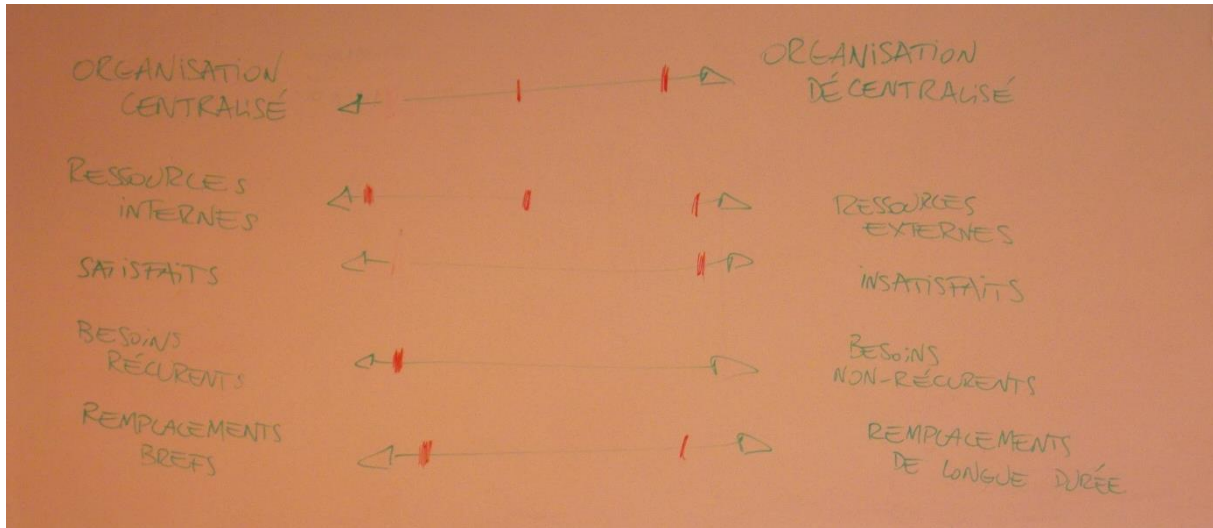 ORGANISATION
CENTRALISÉ
ORGANISATION
DÉCENTRALISÉ
RESSOURCES
INTERNES
RESSOURCES
EXTERNES
SATISFAITS
INSATISFAITS
BESOINS
RÉCURENTS
BESOINS
NON-RÉCURENTS
REMPLACEMENTS
BREFS
REMPLACEMENTS
DE LONGUE DURÉE